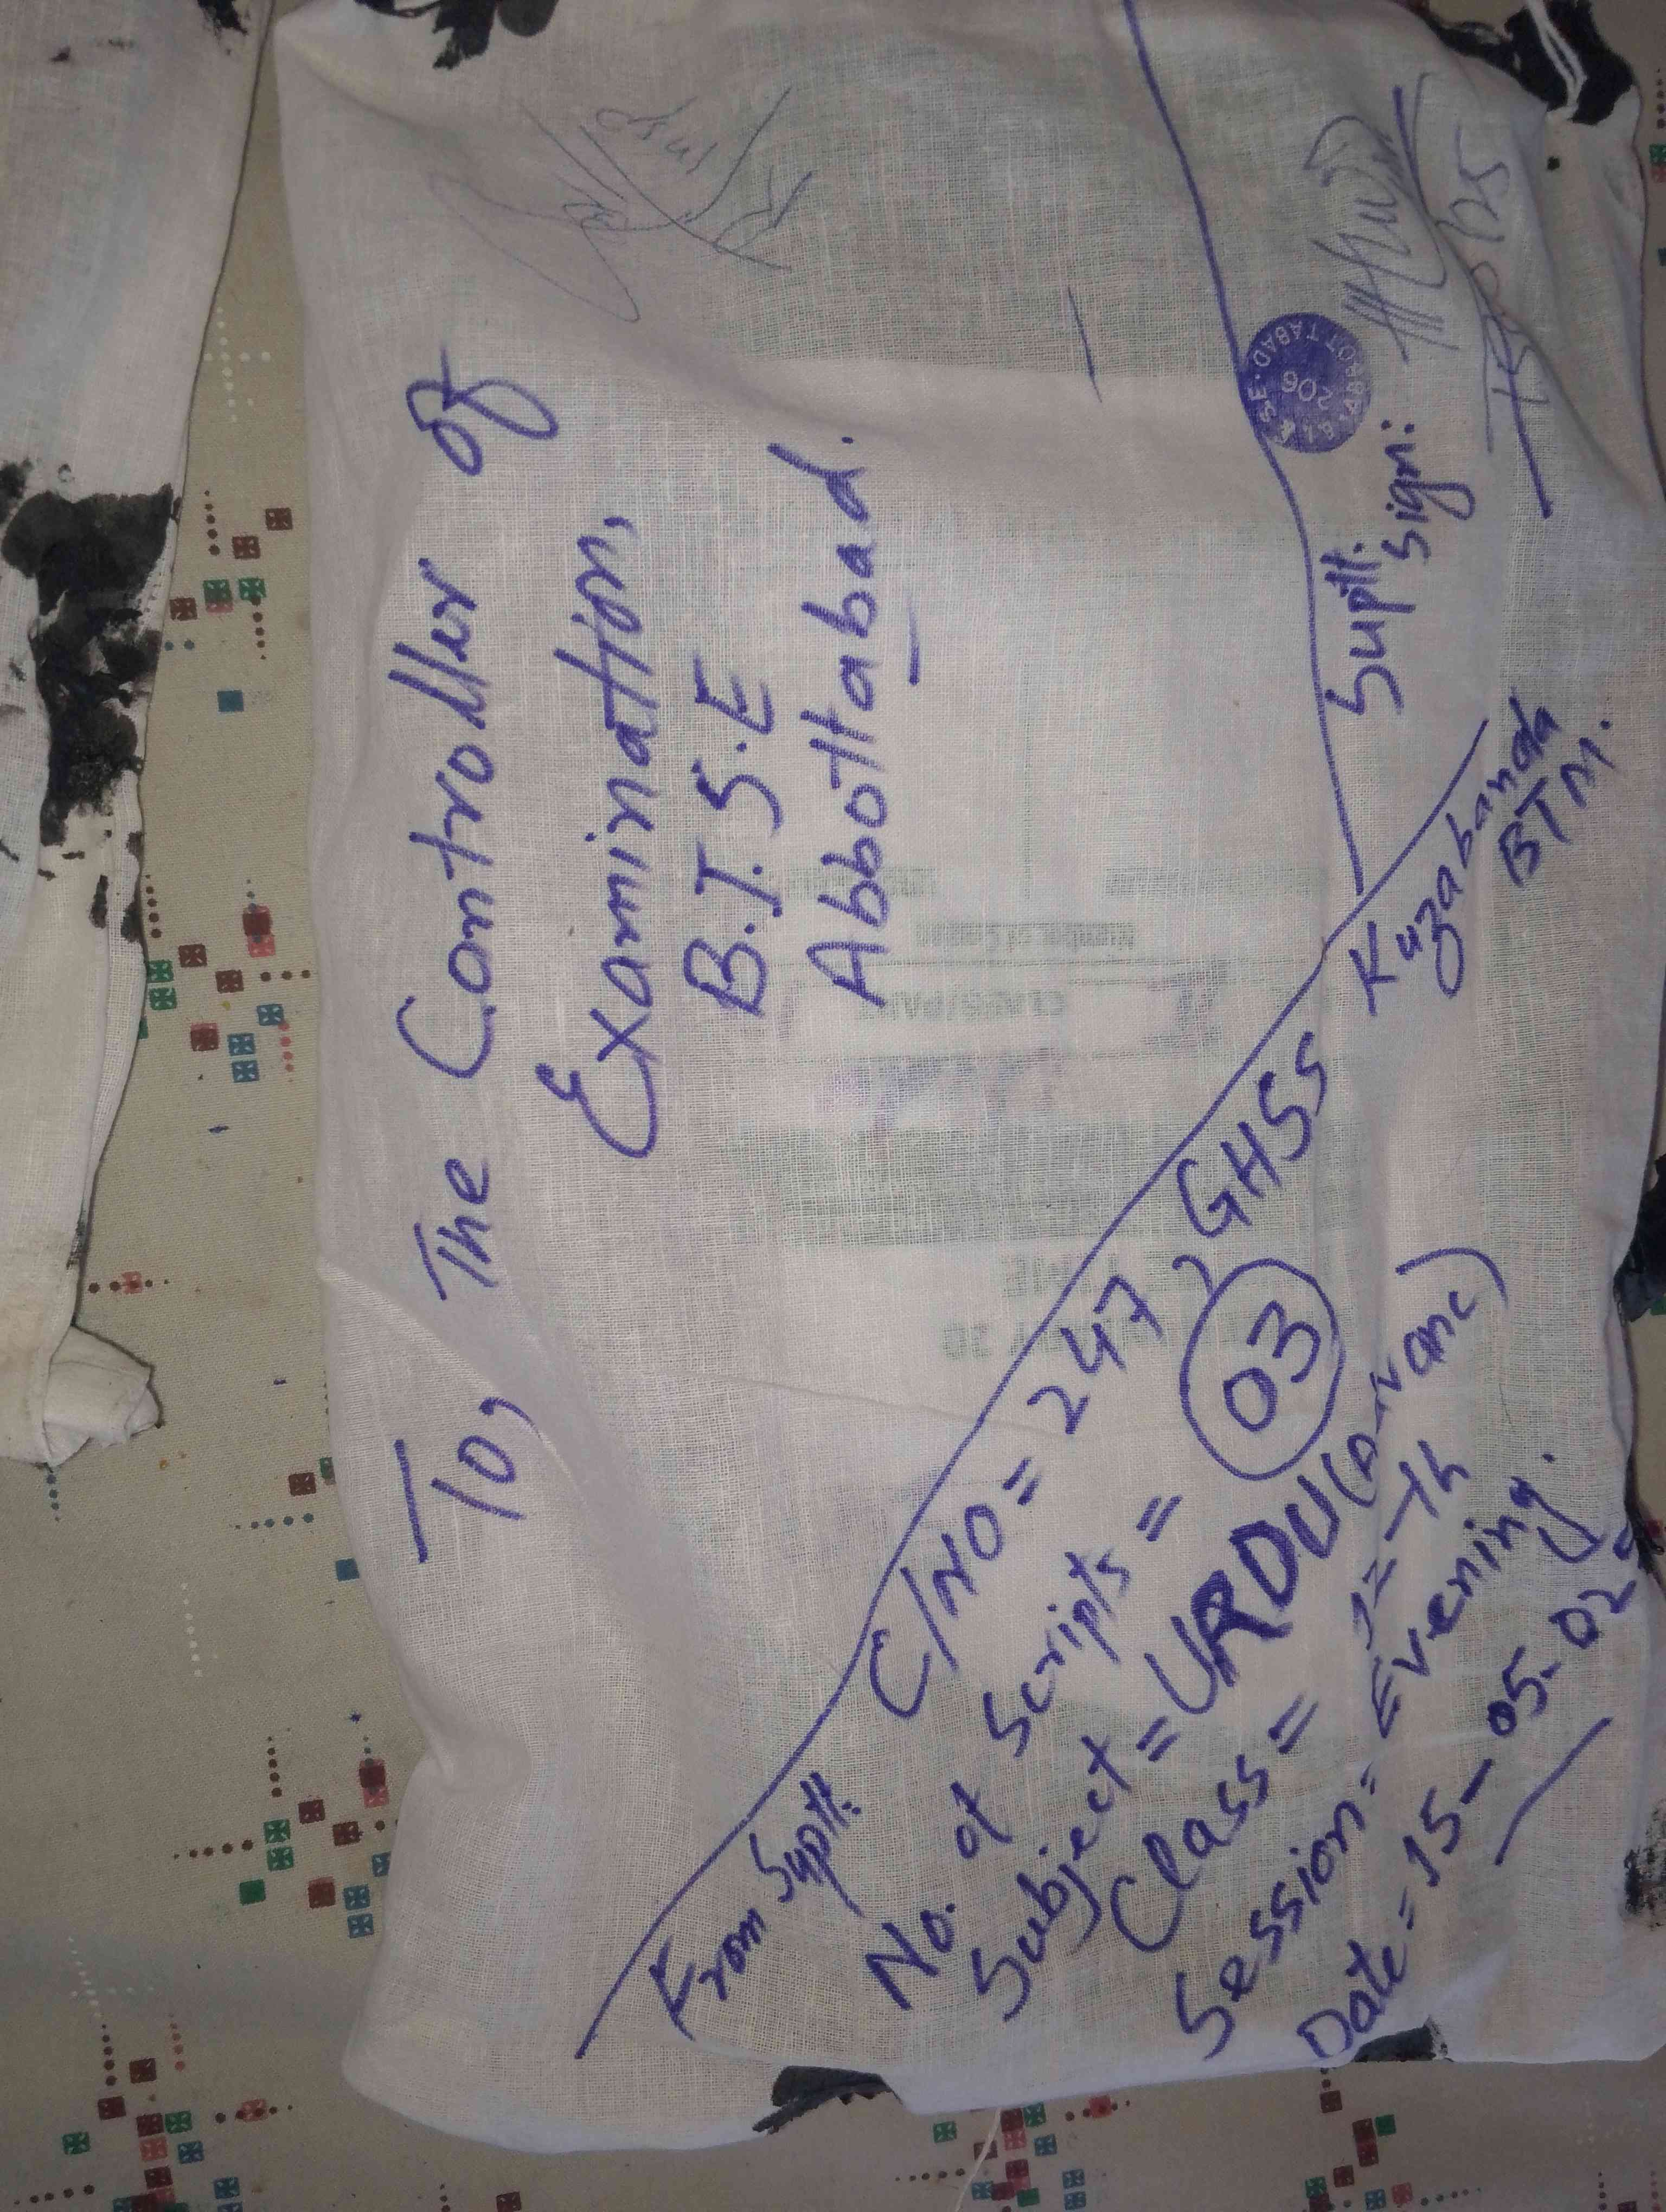 To,
The Controller of
Examination,
B.I.S.E
Abbottabad.
From Suptt:
C/NO = 247, GHSS Kuzabanda
BTM.
No. of Scripts = 03
Subject = URDU (Advanc)
Class = 12-th
Session = Evening.
Date = 15-05-02
Suptt.
Sign:
ABBOTTABAD
206